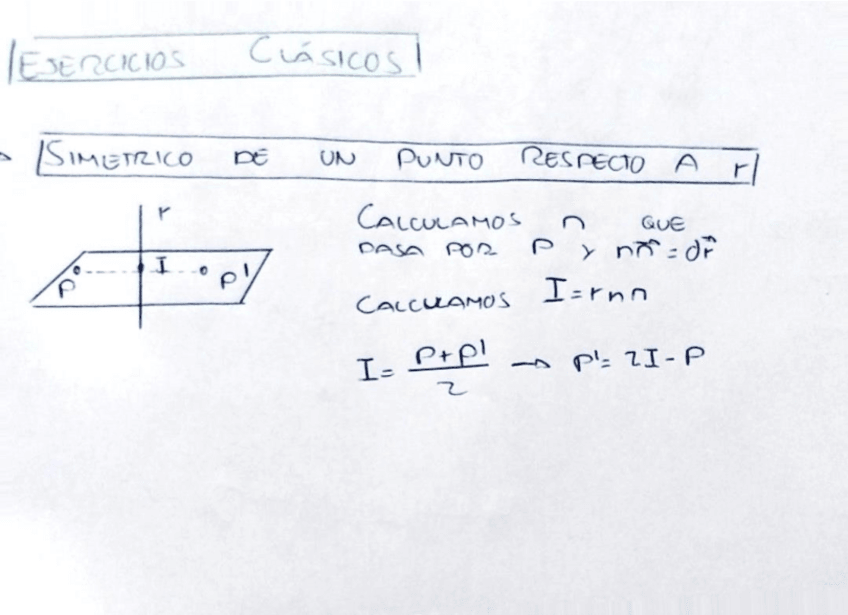 EJERCICIOS CLÁSICOS
SIMETRICO DE UN PUNTO RESPECTO A r
r
P
I
P'
CALCULAMOS π QUE
PASA POR P y nπ⃗ = dr⃗
CALCULAMOS I = r ∩ π
I = (P+P')/2 → P' = 2I - P